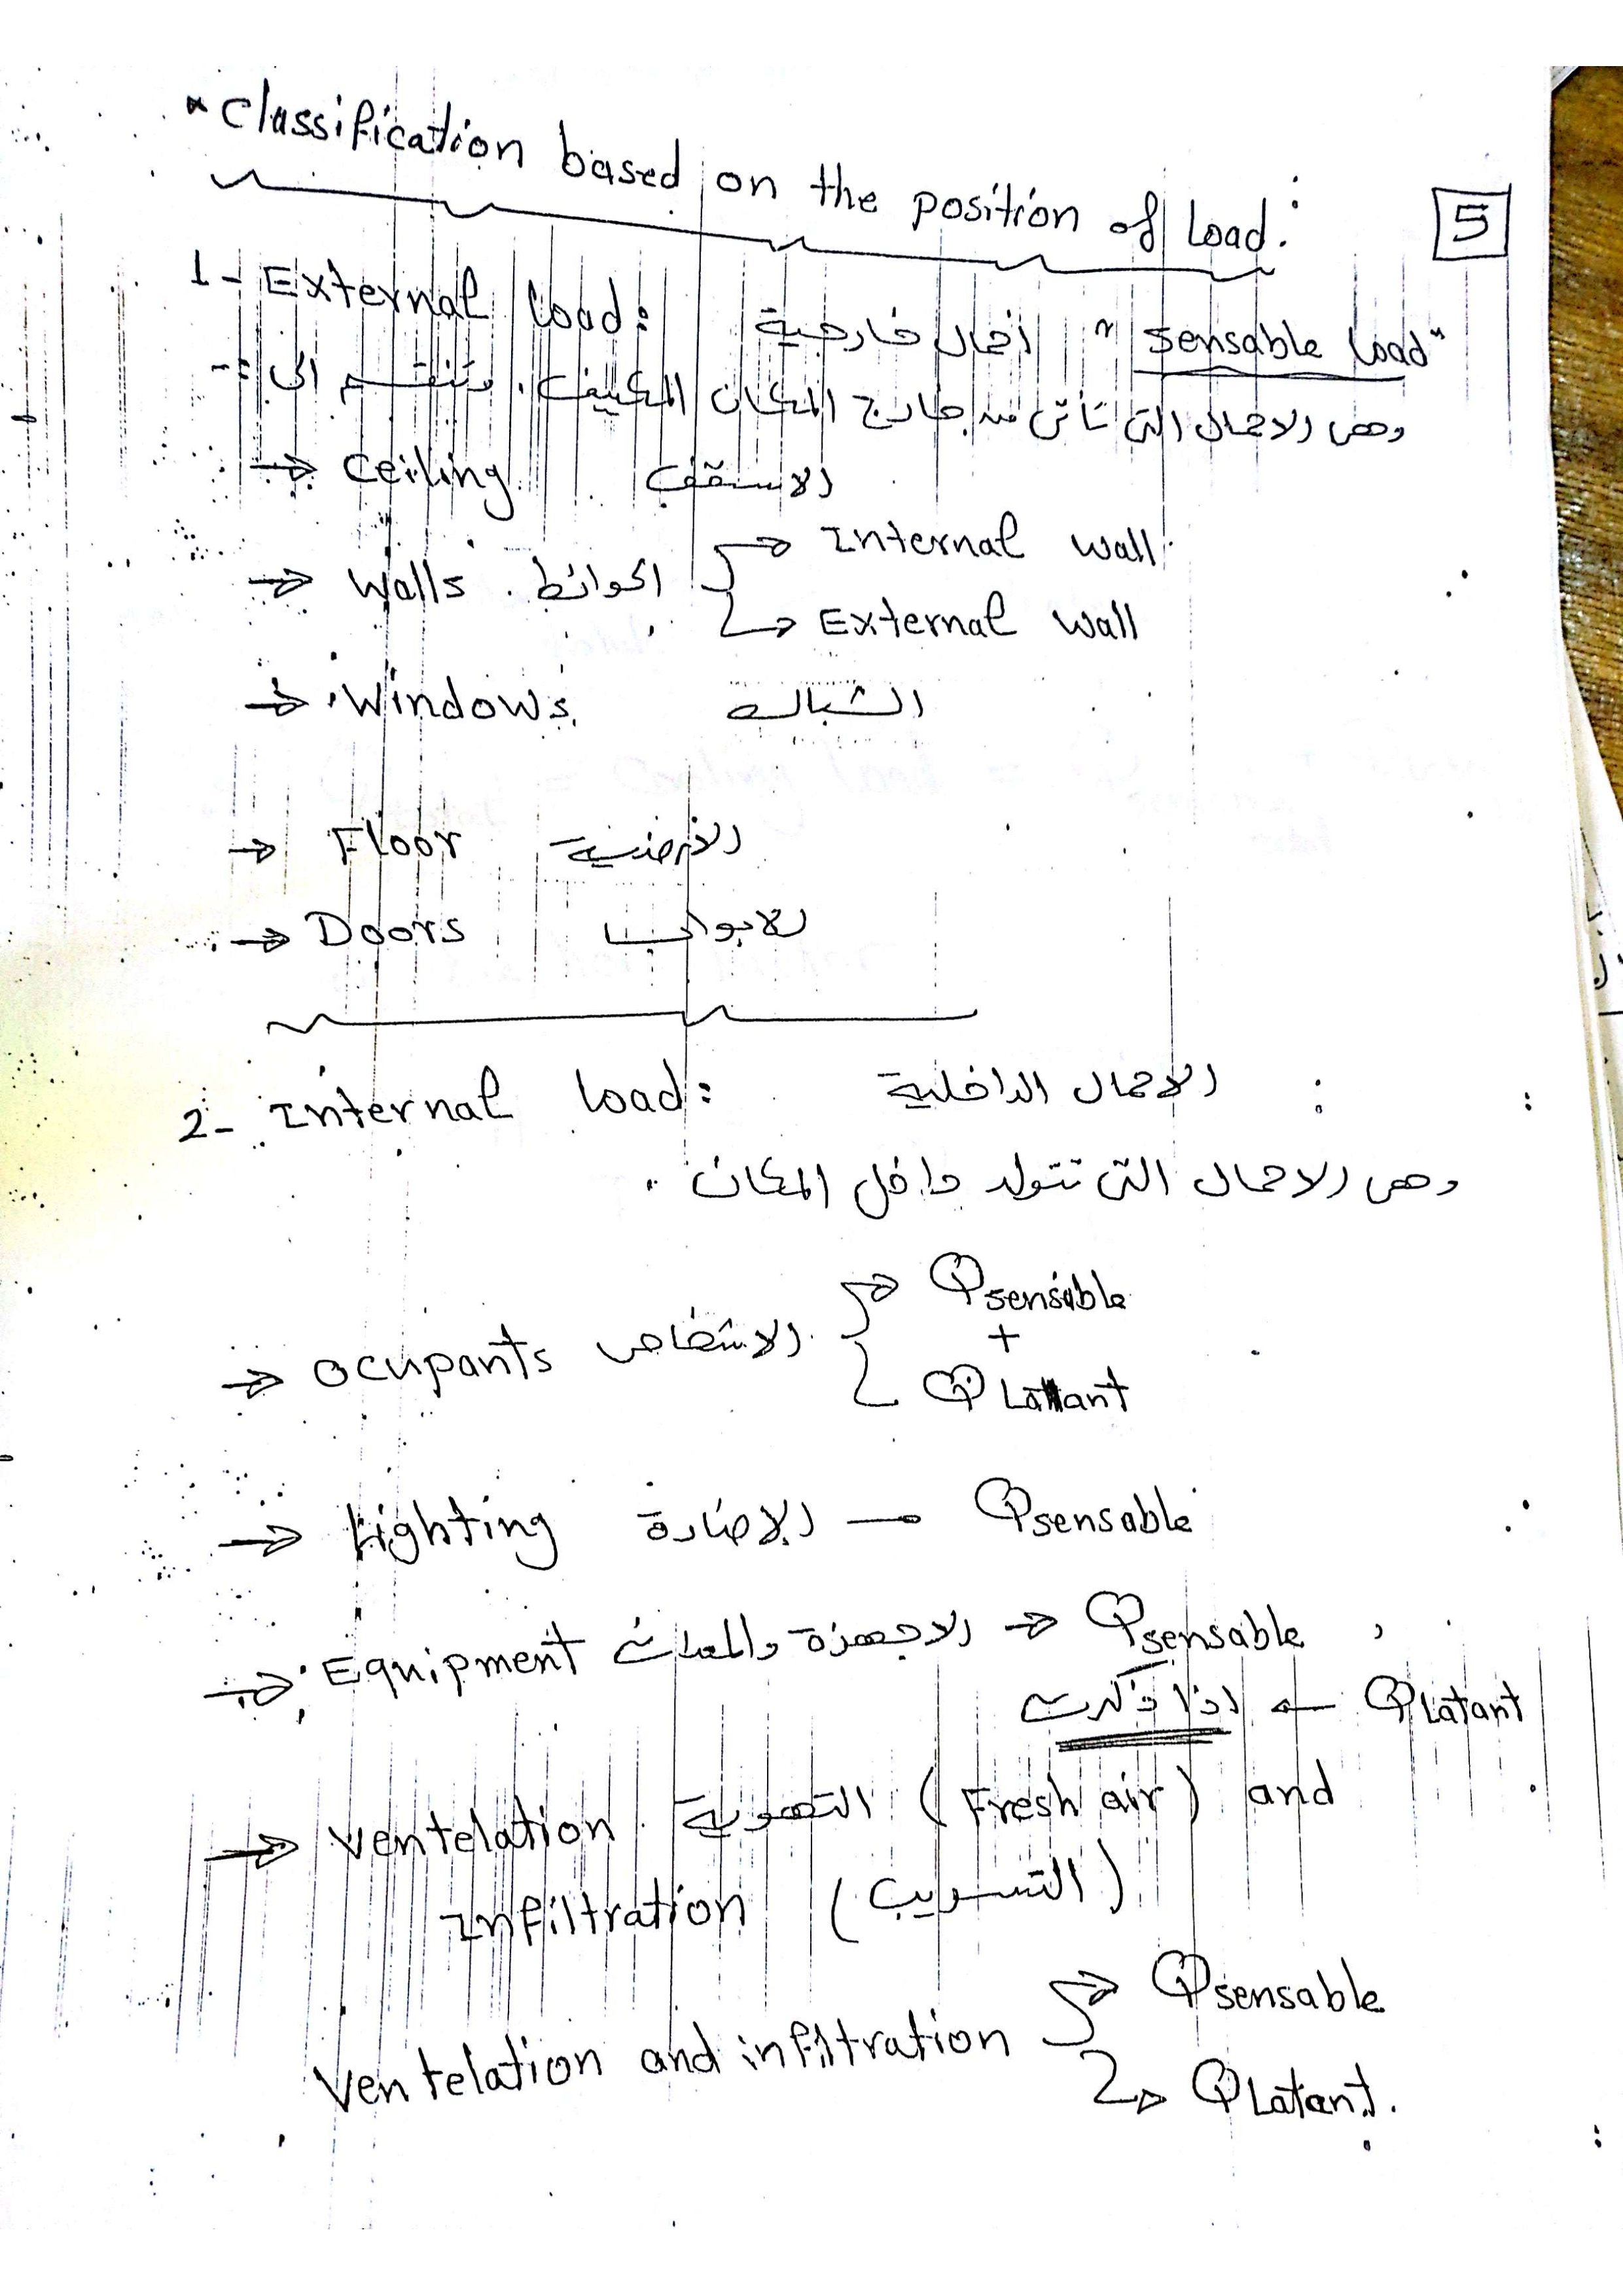 * Classification based on the position of load:
5
1- External load: احمال خارجية "Sensable load"
وهى الاحمال التى تأتى من خارج المكان المكيف. وتنقسم الى :-
→ Ceiling الاسقف
→ Walls الحوائط → Internal wall
→ External wall
→ Windows الشباك
→ Floor الأرضية
→ Doors الابواب
2- Internal load: الاحمال الداخلية :
وهى الاحمال التى تتولد داخل المكان .
→ Ocupants الاشخاص → Qsensible
+
Q Latant
→ Lighting الإضاءة — Qsensable
→ Equipment الاجهزة والمعدات → Qsensable ,
اذا ذكرت ← Q Latant
→ Ventelation التهوية (Fresh air) and
Infiltration (التسريب)
Ventelation and infiltration → Qsensable
→ Q Latant.